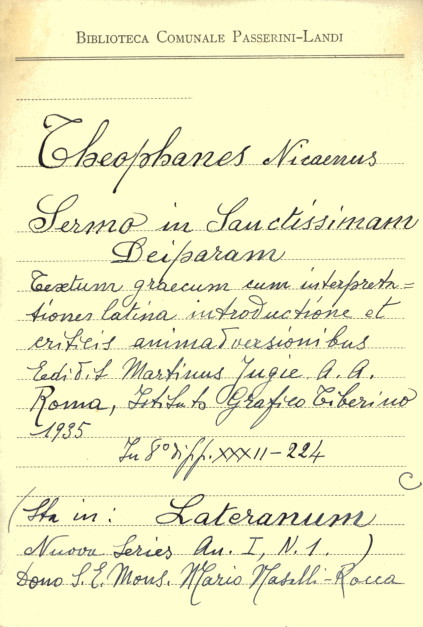 BIBLIOTECA COMUNALE PASSERINI-LANDI
Theophanes Nicaenus
Sermo in Sanctissimam
Deiparam
Textum graecum cum interpreta=
tiones latina introductione et
criticis animadversionibus
Eedidit Martinus Jugie A. A.
Roma, Istituto Grafico Tiberino
1935
In 8° di pp. XXXII-224
C
(Sta in: Lateranum
Nuova Series An. I, N. 1. )
Dono S. E. Mons. Mario Nasalli-Rocca